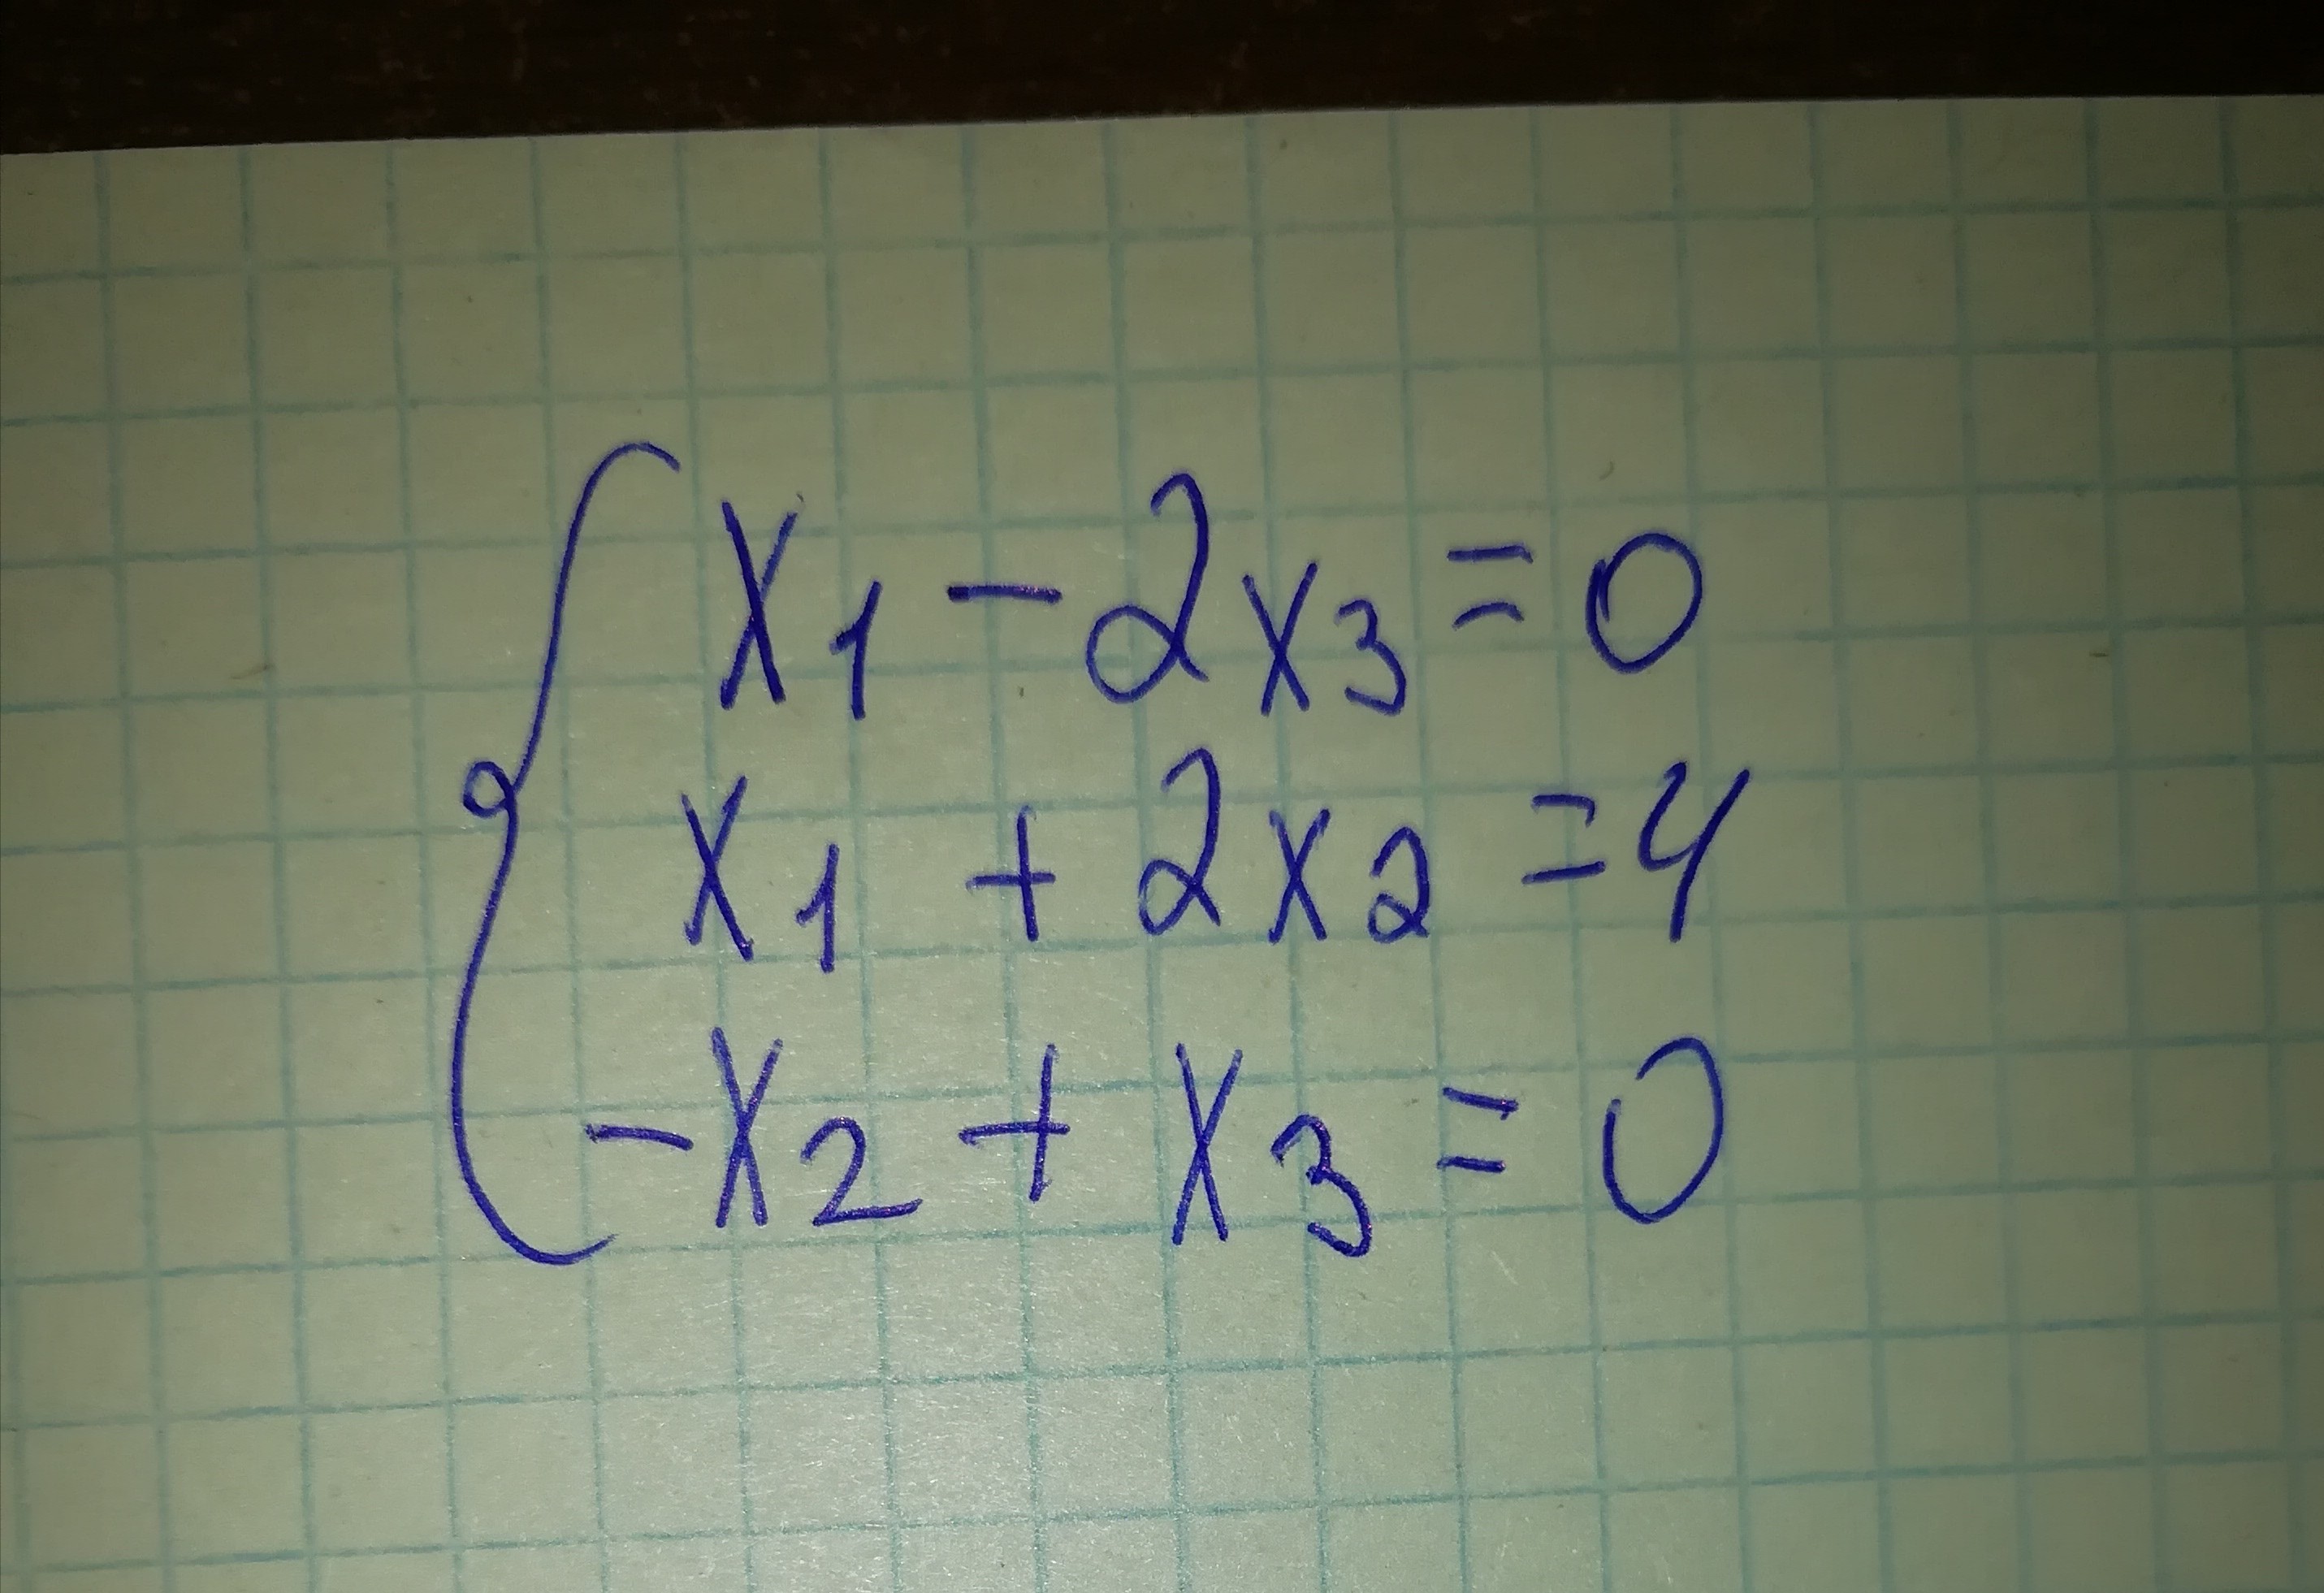 x1 - 2x3 = 0
x1 + 2x2 = 4
-x2 + x3 = 0